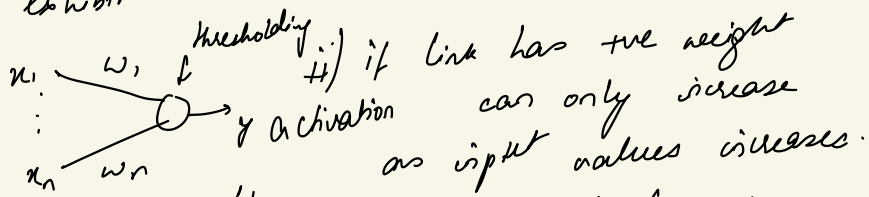 thresholding
x₁ w₁
ii) if link has +ve weight
y activation can only increase
xₙ wₙ
as input values increases.